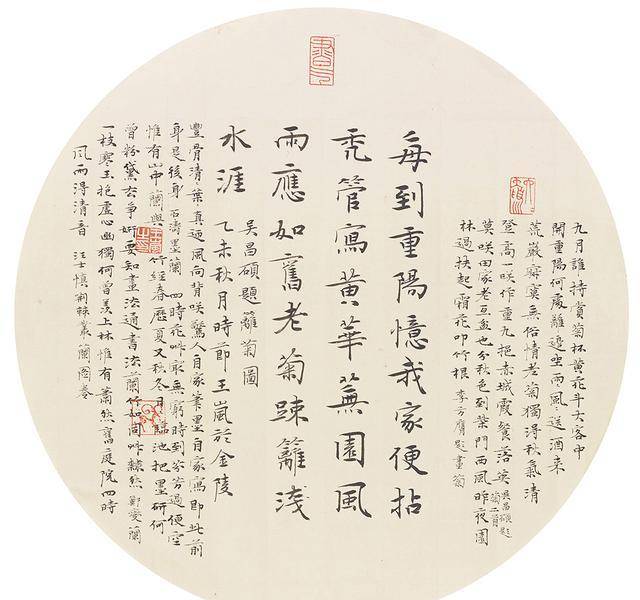 九月誰持賞菊杯黃花斗大客中
開重陽何處籬邊坐雨風風送酒來
荒巖寂寞無俗情老菊獨得秋氣清
登高一咲作重九挹赤城霞餐落英 吳昌碩題菊二首
莫咲田家老瓦盆也分秋色到柴門西風昨夜園
林過扶起霜花叩竹根 李方膺題畫菊
每到重陽憶我家便拈
禿管寫黃華蕪園風
雨應如舊老菊踈籬淺
水涯
吳昌碩題籬菊圖
乙未秋月時節王嵐於金陵
豐骨清葉真迺風向背咲驚人自家筆墨自家寫即此前
身是後身 石濤墨蘭 四時花艸最無窮時到芬芳過便空
惟有山中蘭與竹經春歷夏又秋冬 臨池把墨研何
曾粉黛去爭妍要知畫法通書法蘭竹如同艸隸然 鄭燮蘭
一枝寒玉抱虛心幽獨何曾羨上林惟有蕭然舊庭院四時
風雨得清音 汪士慎荊棘叢蘭圖卷